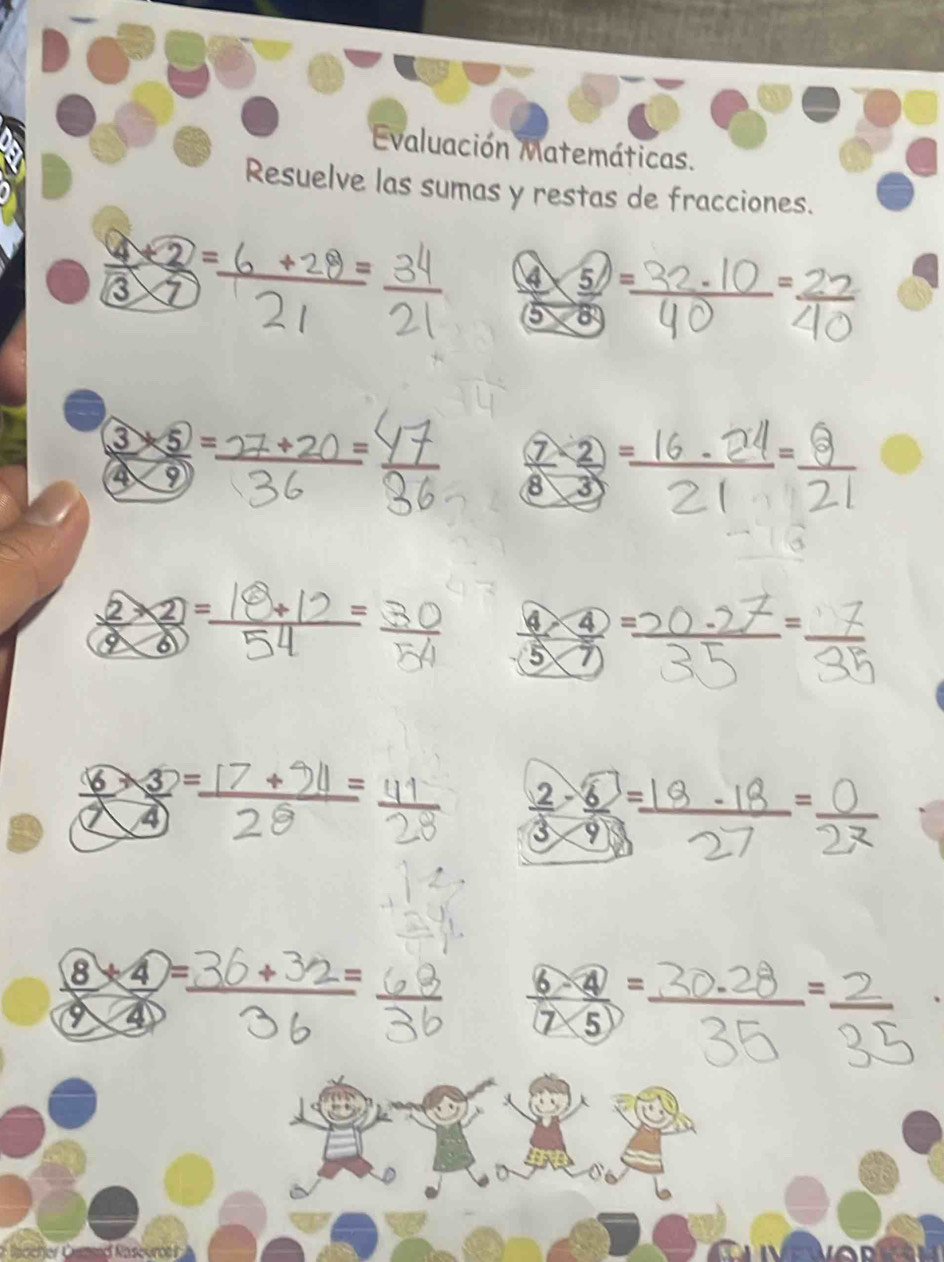 Evaluación Matemáticas.
Resuelve las sumas y restas de fracciones.
4/3 + 2/7 = 6 + 28 / 21 = 34/21
4/5 - 5/8 = 32 - 10 / 40 = 22/40
3/4 + 5/9 = 27 + 20 / 36 = 47/36
7/8 - 2/3 = 16 - 24 / 21 = 8/21
2/9 + 2/6 = 18 + 12 / 54 = 30/54
4/5 - 4/7 = 20 - 27 / 35 = 7/35
6/7 + 3/4 = 17 + 24 / 28 = 41/28
2/3 - 6/9 = 18 - 18 / 27 = 0/27
8/9 + 4/4 = 36 + 32 / 36 = 68/36
6/7 - 4/5 = 30 - 28 / 35 = 2/35